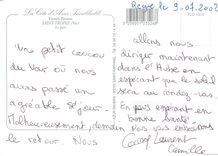 La Côte d'Azur Inoubliable
SAINT-TROPEZ (Var)
Reçue le 9.07.2002
Une petit coucou
du Var où nous
avons passé un
agréable séjour.
Malheureusement, demain
le retour. Nous
allons nous
diriger maintenant
dans l'Aube en
espérant que le soleil
sera au rendez-vous.
En vous espérant en
bonne santé.
Nous vous embrassons
Laurent
Camille